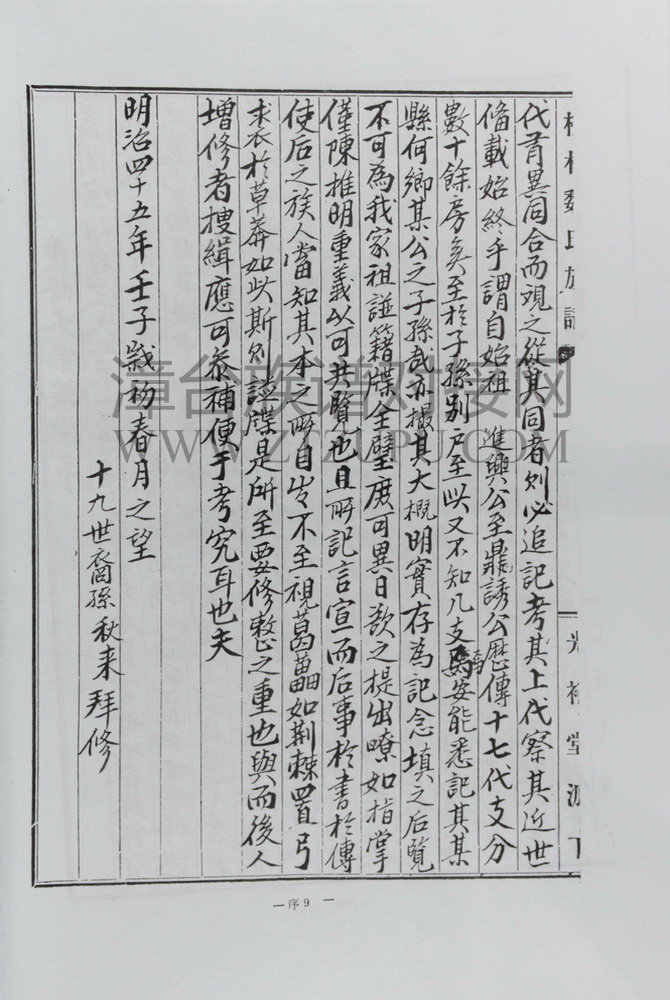 代有異同合而观之從其同者則必追記考其上代察其近世
俻載始終乎謂自始祖 進興公至鼎誘公歷傳十七代支分
數十餘房矣至於子孫别戶至此又不知几支焉安能悉記其某
縣何鄉某公之子孫哉亦撮其大概明實存為記念填之后覽
不可為我家祖諩籍牒全璧庶可異日欲之提出暸如指掌
僅陳推明重義以可共覽也且所記言宣而后事於書於傳
使后之族人當知其本之所自出不至視葛藟如荆棘置弓
裘於草莽如此斯則諩牒是所至要修整之重也與而後人
增修者搜緝應可叅補便于考究耳也夫
明治四十五年壬子歲初春月之望
十九世裔孫秋来拜修
魏氏族
堂派下
漳台族谱对接网
WWW.ZTZUPU.COM
—序9—